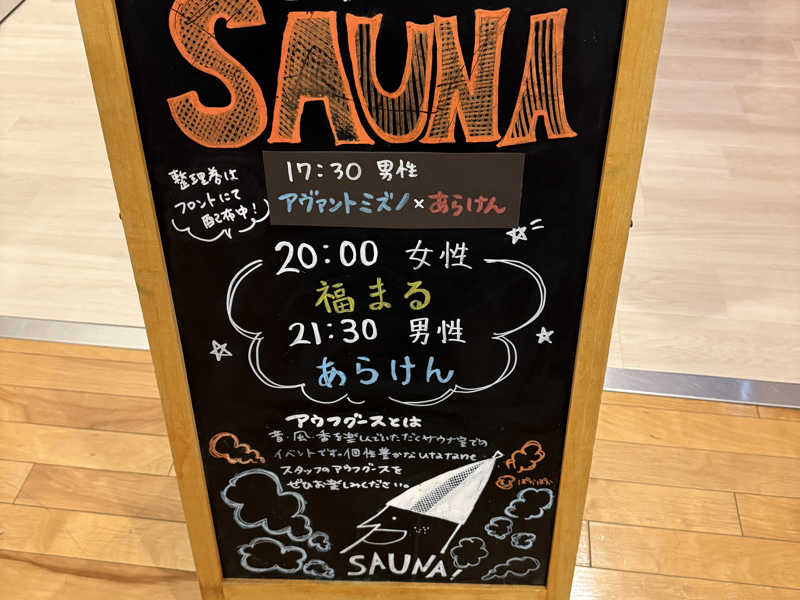 SAUNA
整理券は
フロントにて
配布中!
17:30 男性
アヴァントミズノ×あらけん
20:00 女性
福まる
21:30 男性
あらけん
アウフグースとは
音・風・香を楽しんでいただくサウナ室での
イベントです。個性豊かなutatane
スタッフのアウフグースを
ぜひお楽しみください。
SAUNA!